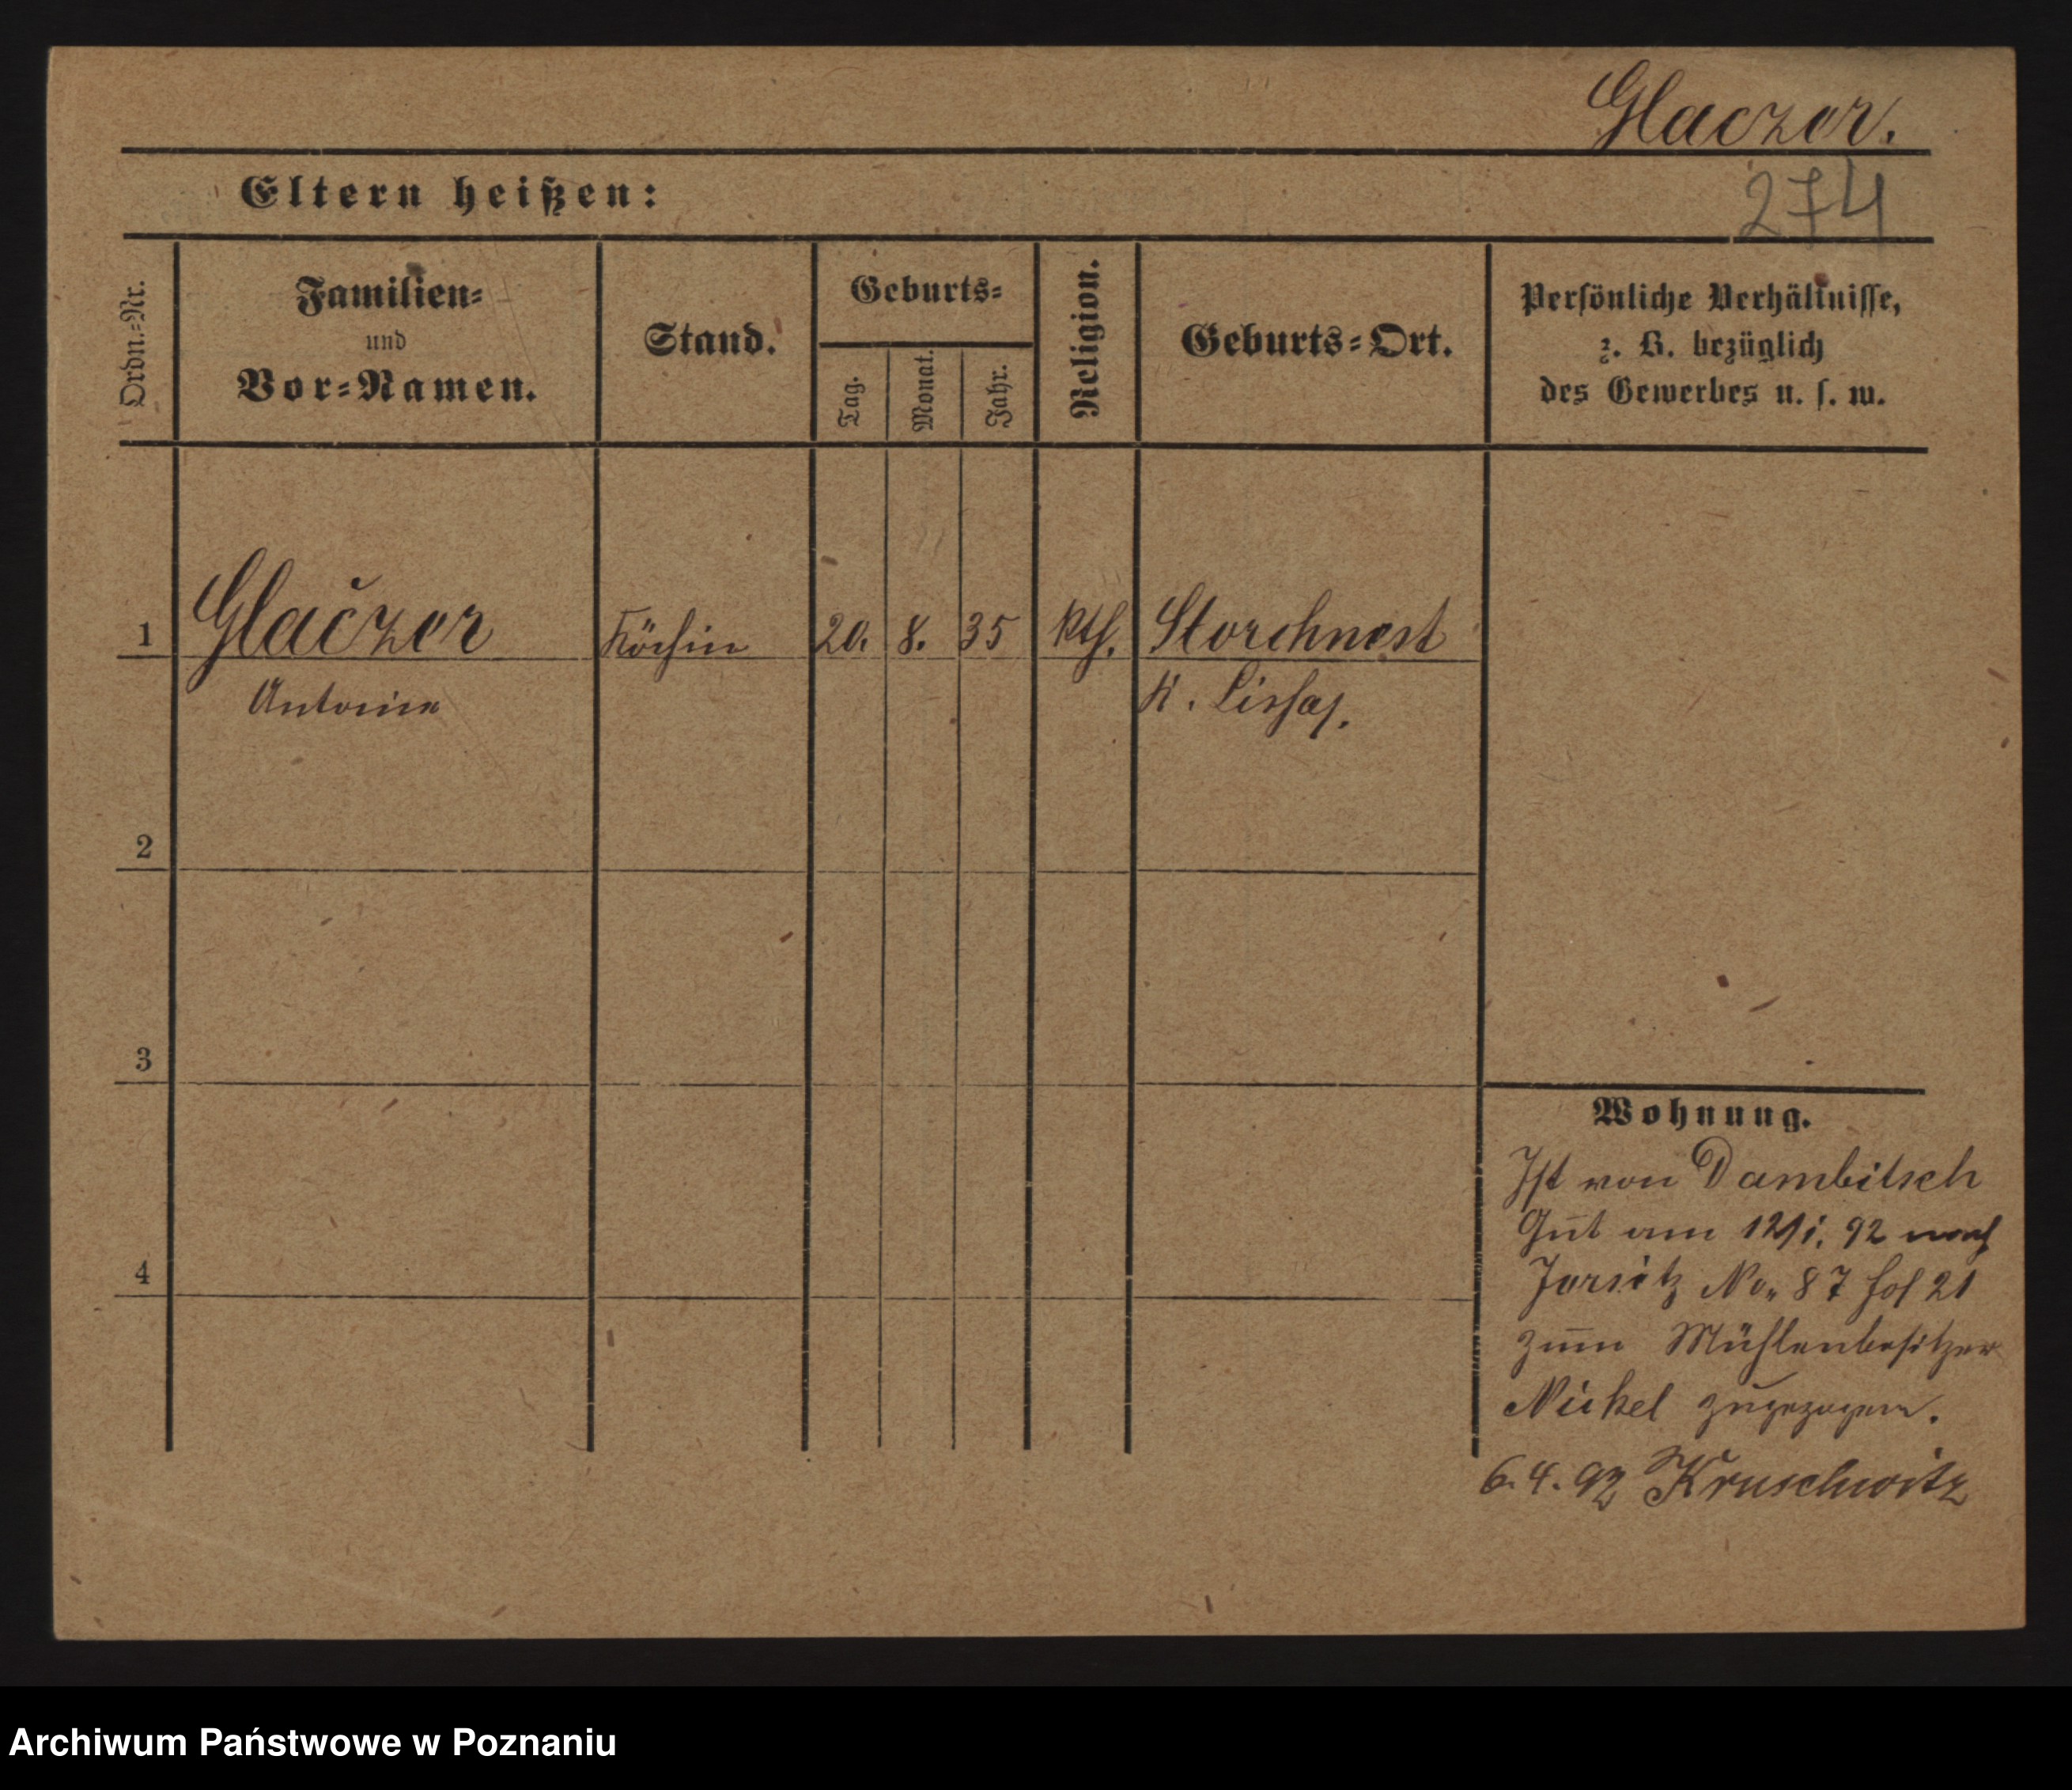 Glaczer.
Eltern heißen:
274
Ordn.=Nr.
Familien=
und
Vor=Namen.
Stand.
Geburts=
Tag.
Monat.
Jahr.
Religion.
Geburts=Ort.
Persönliche Verhältnisse,
z. B. bezüglich
des Gewerbes u. s. w.
1 Glaczer Köchin 20. 8. 35 kth. Storchnest
Antonie K. Lissa
2
3
4
Wohnung.
Ist von Dambitsch
Gut am 12/1. 92 nach
Jersitz No. 87 Hof 21
zum Mühlenbesitzer
Nickel zugezogen.
6. 4. 92 Kruschwitz
Archiwum Państwowe w Poznaniu